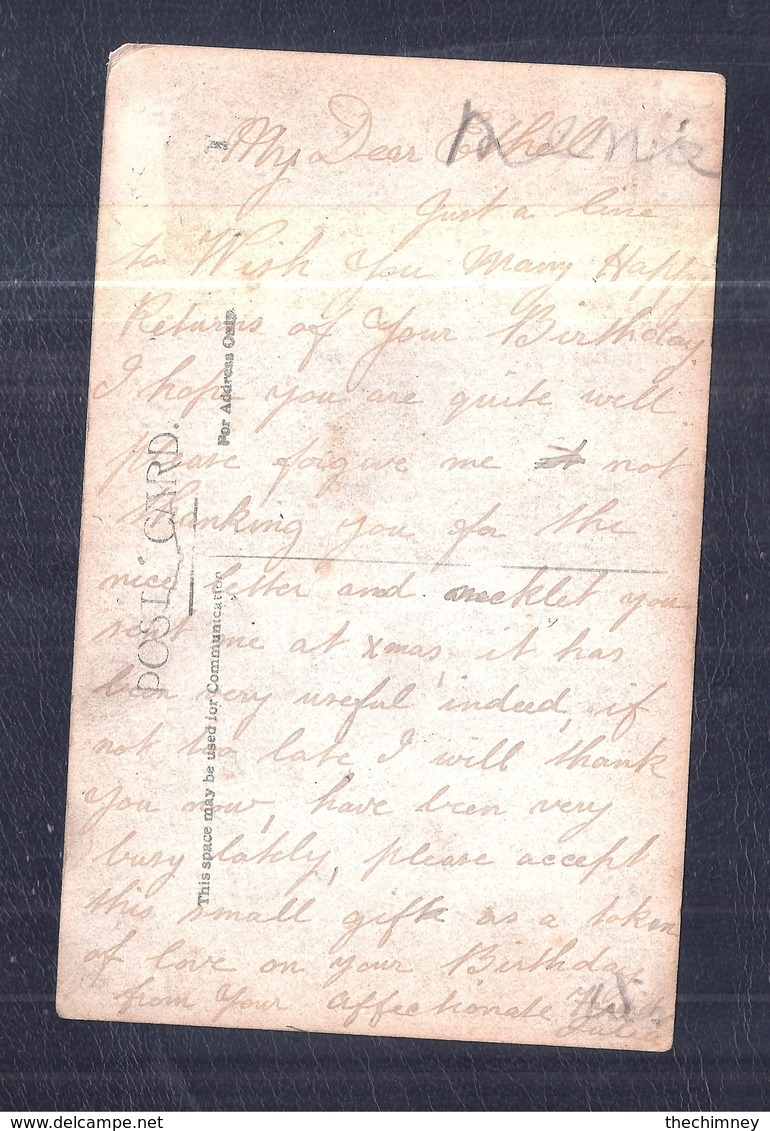 My Dear Ethel
Just a line
to Wish You Many Happy
Returns of Your Birthday
I hope you are quite well
please forgive me not
thanking you for the
nice letter and necklet you
sent me at Xmas, it has
been very useful indeed, if
not too late I will thank
You now, have been very
busy lately, please accept
this small gift as a token
of love on your Birthday
from Your affectionate
POST CARD.
For Address Only.
This space may be used for Communication
www.delcampe.net
thechimney